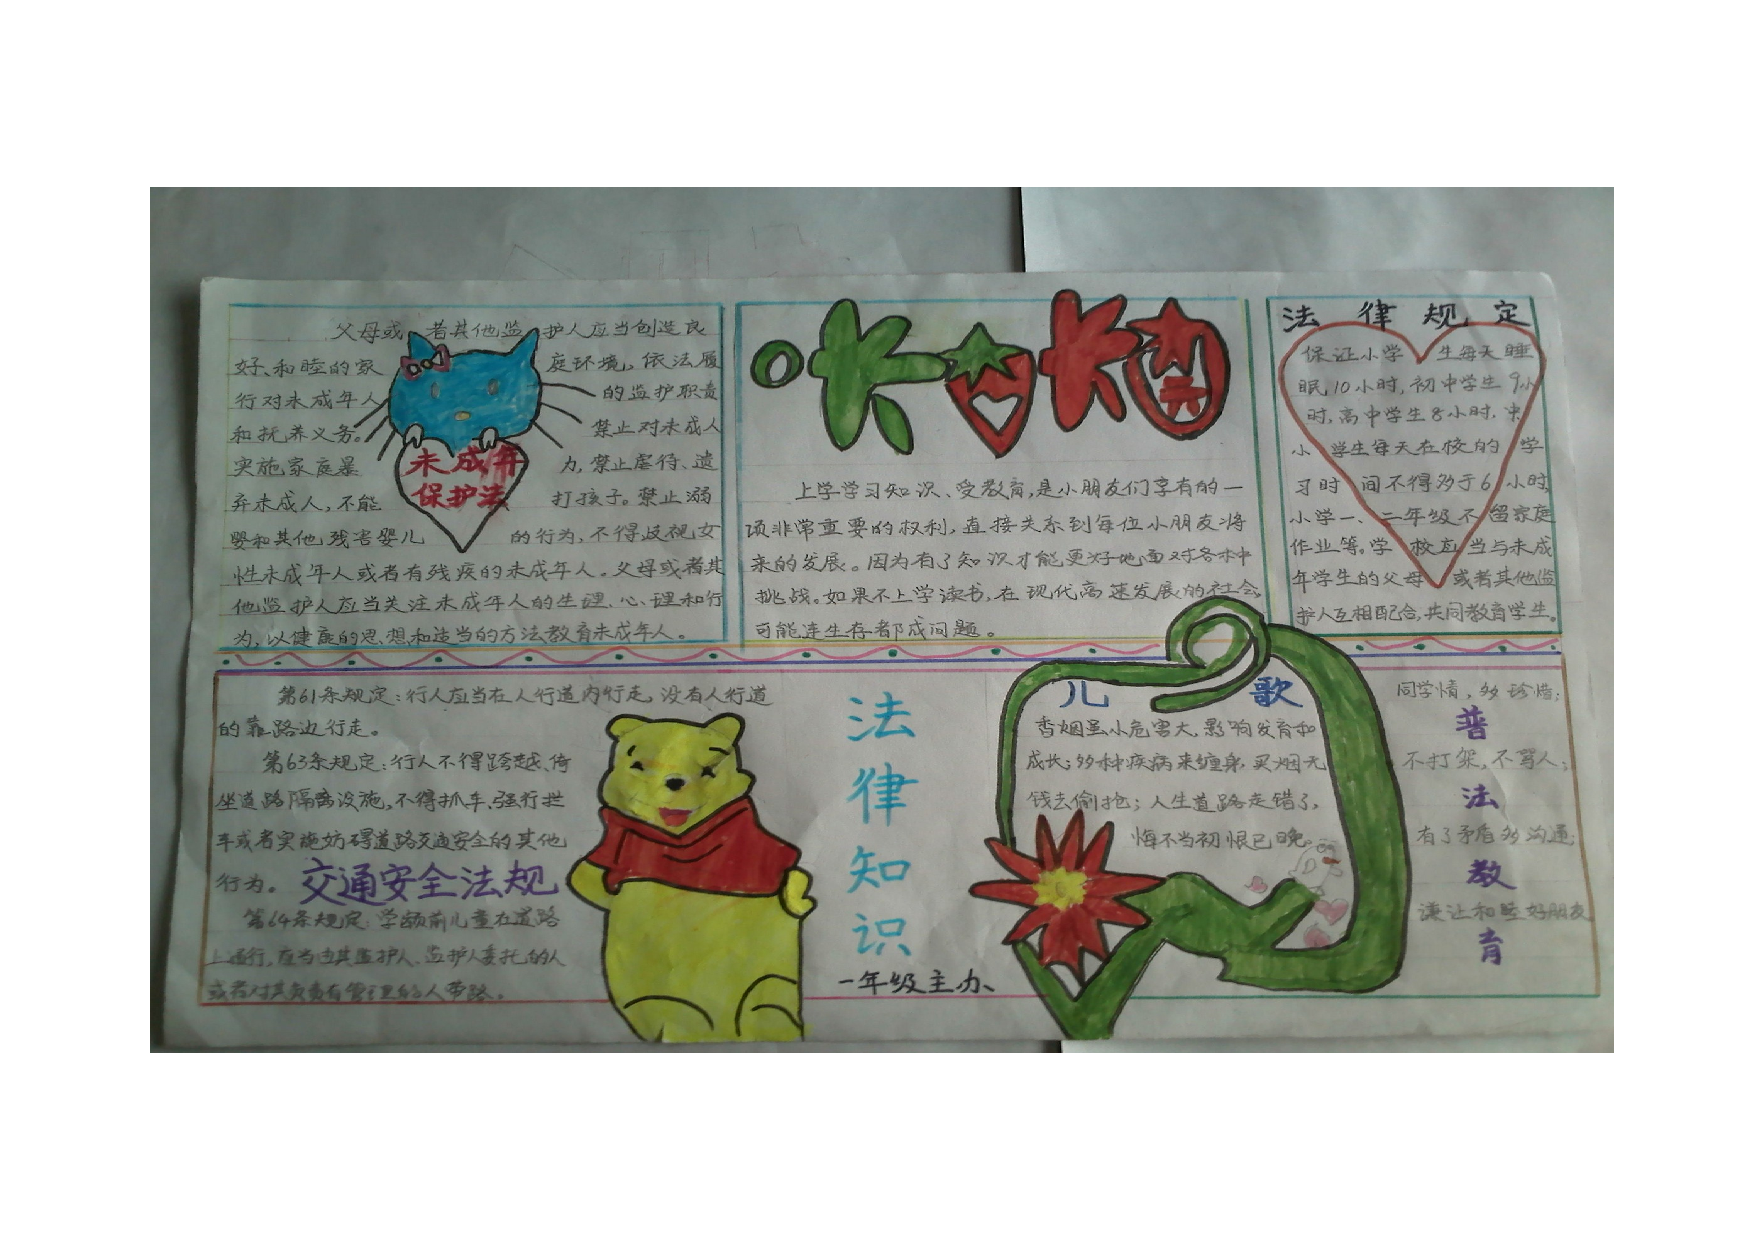 父母或者其他监护人应当创造良
好、和睦的家庭环境，依法履
行对未成年人的监护职责
和抚养义务。禁止对未成人
实施家庭暴力，禁止虐待、遗
弃未成人，不能打孩子。禁止溺
婴和其他残害婴儿的行为，不得歧视女
性未成年人或者有残疾的未成年人。父母或者其
他监护人应当关注未成年人的生理、心理和行
为，以健康的思想和适当的方法教育未成年人。
未成年
保护法
上学学习知识、受教育，是小朋友们享有的一
项非常重要的权利，直接关系到每位小朋友将
来的发展。因为有了知识才能更好地面对各种
挑战。如果不上学读书，在现代高速发展的社会，
可能连生存都成问题。
法律规定
保证小学生每天睡
眠10小时，初中学生9小
时，高中学生8小时，中
小学生每天在校的学
习时间不得多于6小时，
小学一、二年级不留家庭
作业等。学校应当与未成
年学生的父母或者其他监
护人互相配合，共同教育学生。
第61条规定：行人应当在人行道内行走，没有人行道
的靠路边行走。
第63条规定：行人不得跨越、倚
坐道路隔离设施，不得抓车、强行拦
车或者实施妨碍道路交通安全的其他
行为。
交通安全法规
第64条规定：学龄前儿童在道路
上通行，应当由其监护人、监护人委托的人
或者对其负责有管理的人带路。
法律知识
一年级主办、
儿歌
香烟虽小危害大，影响发育和
成长；多种疾病来缠身，买烟无
钱去偷抢；人生道路走错了，
悔不当初恨已晚。
同学情，多珍惜；
普
不打架，不骂人；
法
有了矛盾多沟通；
教
谦让和睦好朋友
育